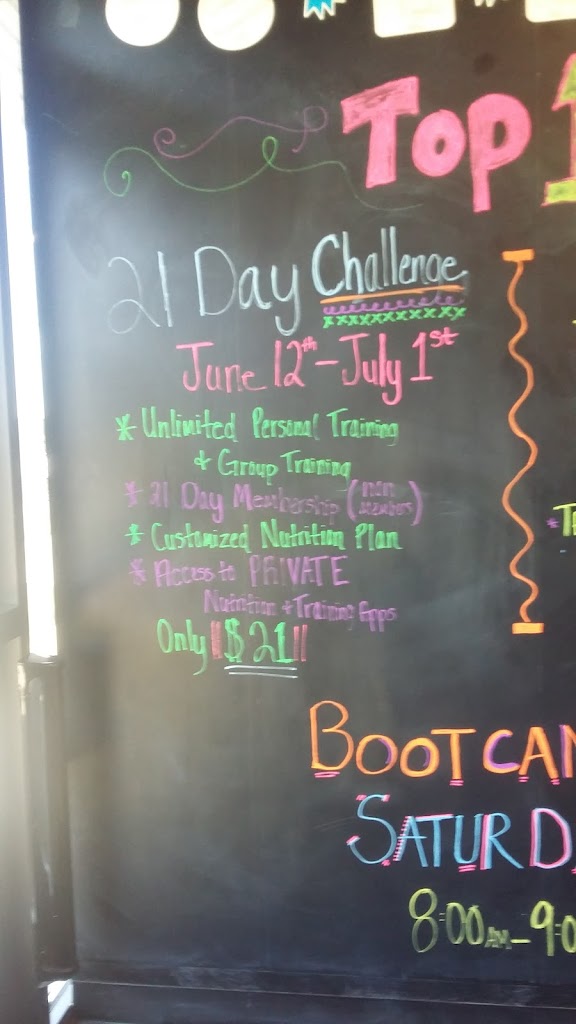 Top 1
21 Day Challenge
June 12th - July 1st
* Unlimited Personal Training
+ Group Training
* 21 Day Membership (non members)
* Customized Nutrition Plan
* Access to PRIVATE
Nutrition + Training Apps
Only $21
BOOTCAM
SATURDA
8:00AM - 9:0